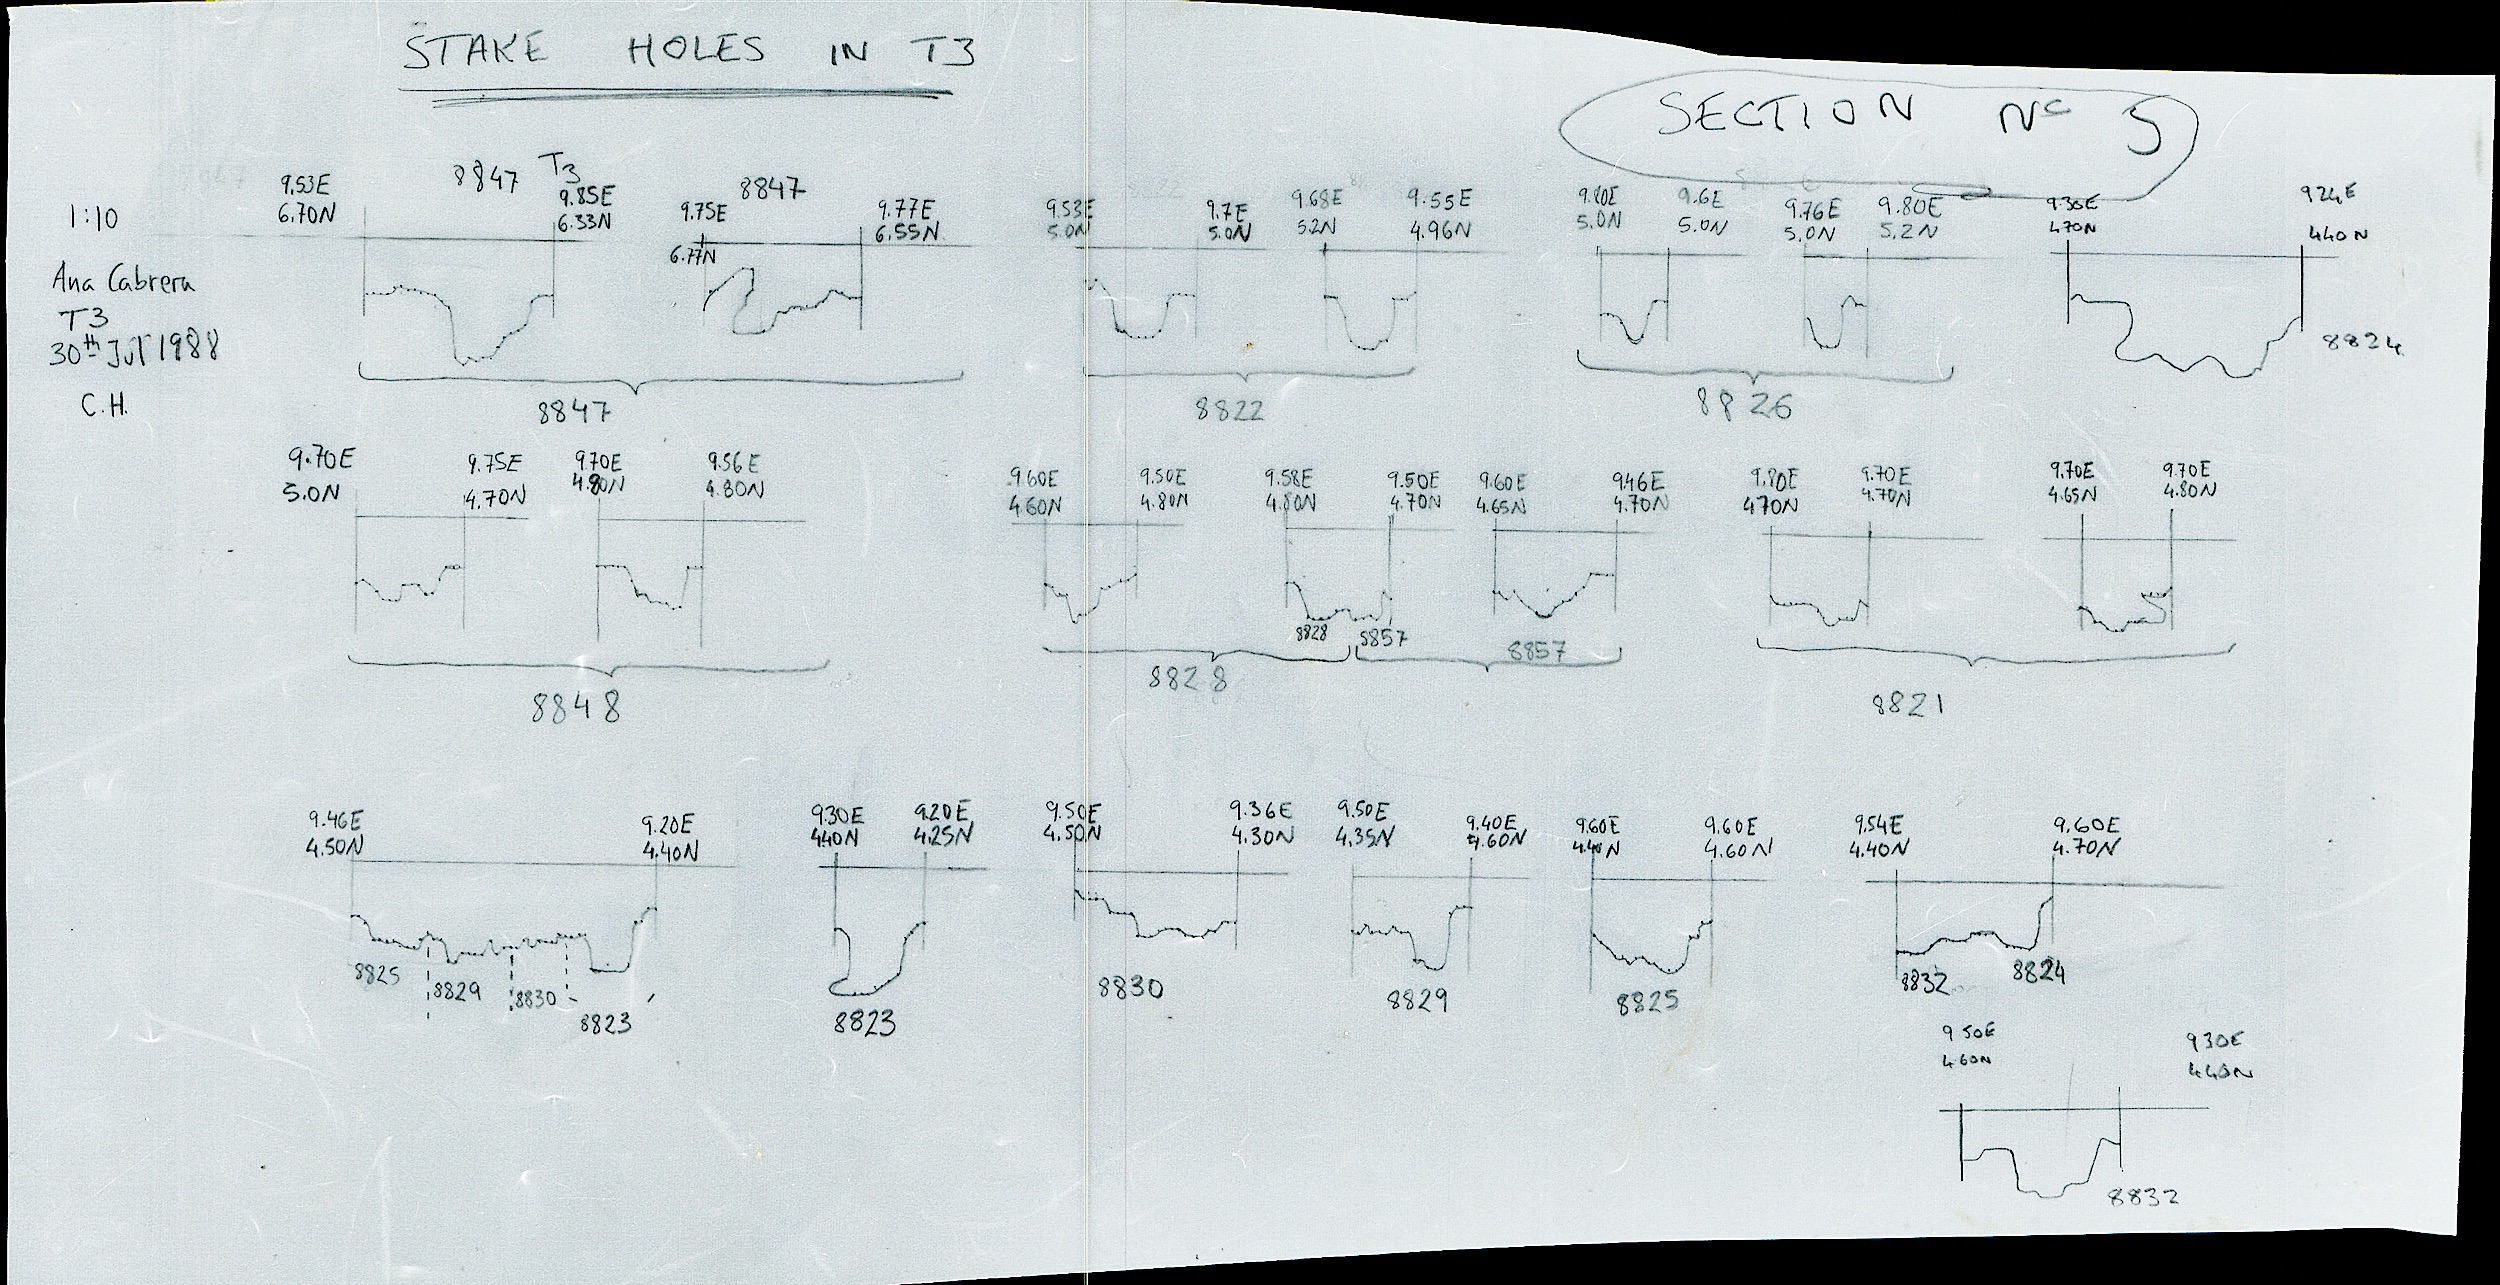 STAKE HOLES IN T3
SECTION Nº 5
1:10
Ana Cabrera
T3
30th Jul 1988
C.H.
9.53E
6.70N
8847 T3
9.85E
6.33N
9.75E
6.77N
8847
9.77E
6.55N
8847
9.53E
5.0N
9.7E
5.0N
9.68E
5.2N
9.55E
4.96N
8822
9.80E
5.0N
9.6E
5.0N
9.76E
5.0N
9.80E
5.2N
8826
9.36E
4.70N
9.24E
4.40N
8824
9.70E
5.0N
9.75E
4.70N
9.70E
4.90N
9.56E
4.80N
8848
9.60E
4.60N
9.50E
4.80N
9.58E
4.80N
9.50E
4.70N
8828 8857
8828
9.60E
4.65N
9.46E
4.70N
8857
9.80E
4.70N
9.70E
4.70N
9.70E
4.65N
9.70E
4.80N
8821
9.46E
4.50N
9.20E
4.40N
8825
8829
8830
8823
9.30E
4.40N
9.20E
4.25N
8823
9.50E
4.50N
9.36E
4.30N
8830
9.50E
4.35N
9.40E
4.60N
8829
9.60E
4.40N
9.60E
4.60N
8825
9.54E
4.40N
9.60E
4.70N
8832
8824
9.50E
4.60N
9.30E
4.40N
8832